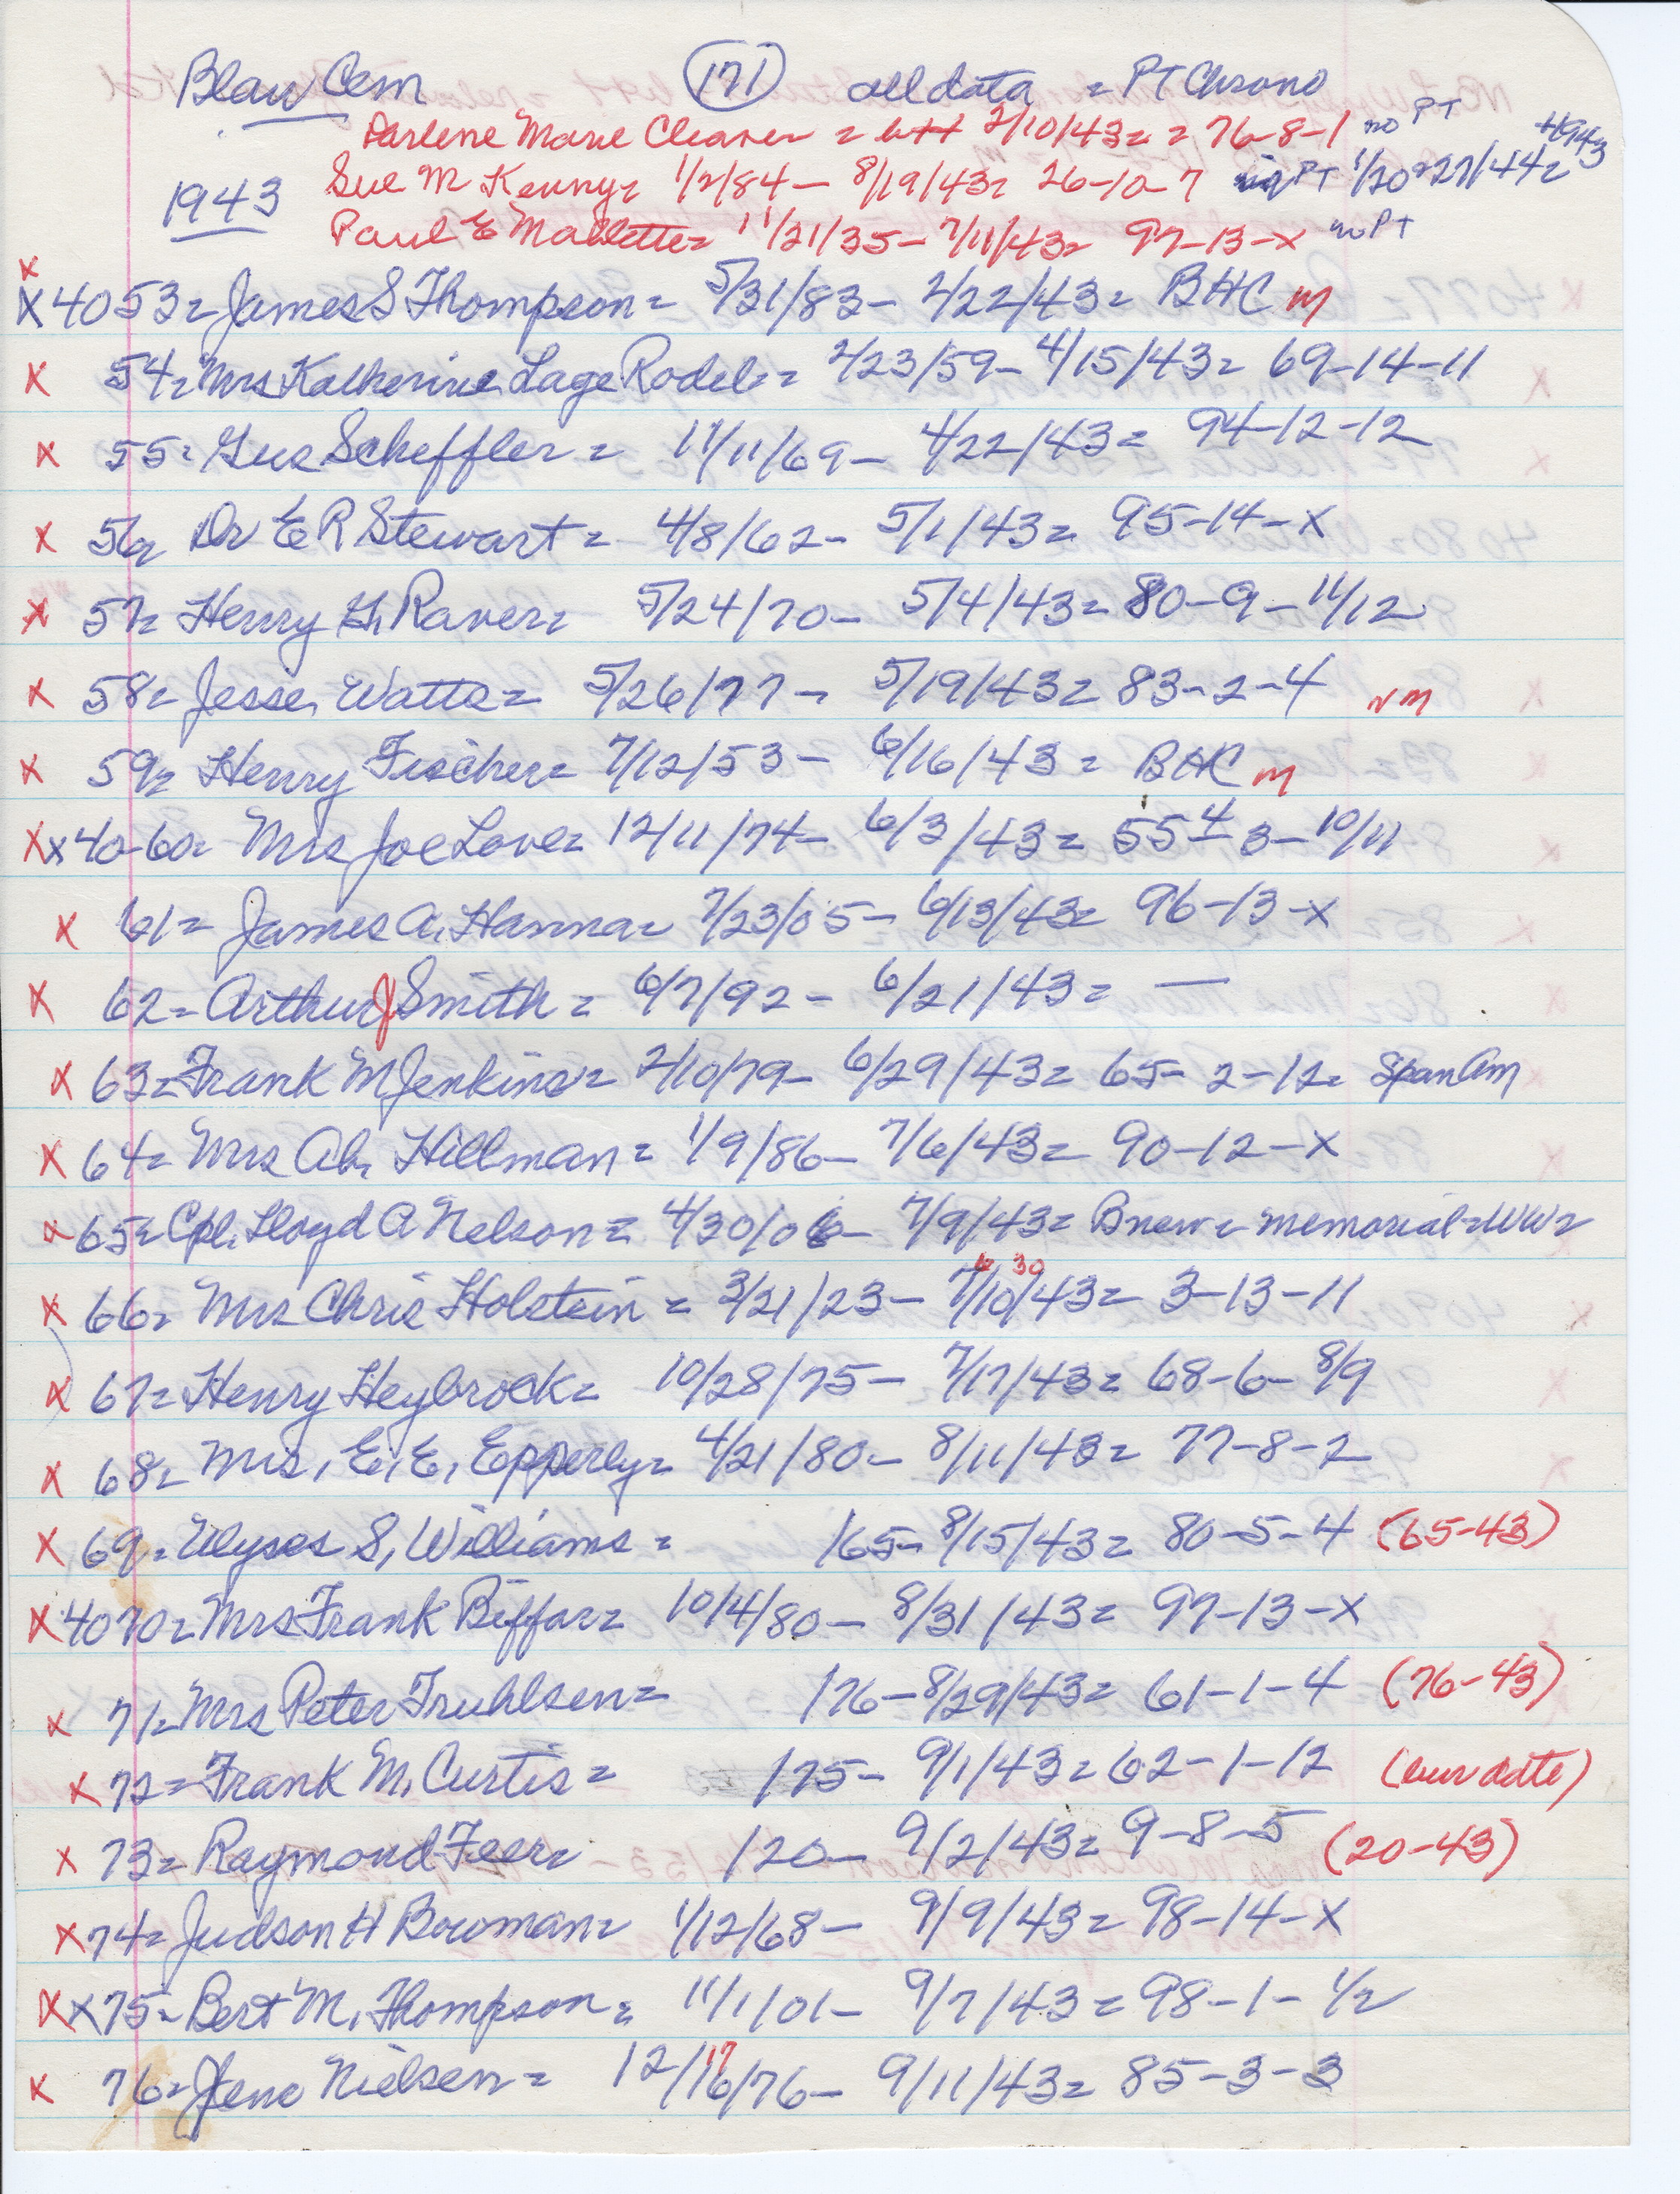 Blair Cem (171) all data = PT Chrono
Darlene Marie Cleaver = b++ 2/10/43 = = 76-8-1 no PT
1943 Sue M Kenny = 1/2/84 - 8/19/43 = 26-10-7 PT 1/20 & 27/44 = 4943
Paul E Mallette = 11/21/35 - 7/11/43 = 97-13-x no PT
x
x 4053 = James S Thompson = 5/31/83 - 2/22/43 = BHC m
x 54 = Mrs Katherine Lage Rodel = 2/23/59 - 4/15/43 = 69-14-11
x 55 = Gus Scheffler = 11/11/69 - 4/22/43 = 94-12-12
x 56 = Dr E R Stewart = 4/8/62 - 5/1/43 = 95-14-x
x 57 = Henry G. Raver = 5/24/70 - 5/4/43 = 80-9-11/12
x 58 = Jesse Watts = 5/26/77 - 5/19/43 = 83-2-4 nm
x 59 = Henry Fischer = 7/12/53 - 6/16/43 = BHC m
x x 40-60 = Mrs Joe Love = 12/11/74 - 6/3/43 = 55 4 3-10/11
x 61 = James A. Hanna = 7/23/05 - 6/13/43 = 96-13-x
x 62 = Arthur J Smith = 6/7/92 - 6/21/43 = —
x 63 = Frank M Jenkins = 2/10/79 - 6/29/43 = 65-2-12 = Span Am
x 64 = Mrs Ab. Hillman = 1/9/86 - 7/6/43 = 90-12-x
x 65 = Cpl. Lloyd A Nelson = 4/30/06 - 7/9/43 = Bnew = memorial = WW2
6 30
x 66 = Mrs Chris Holstein = 3/21/23 - 7/10/43 = 3-13-11
x 67 = Henry Heybrock = 10/28/75 - 7/17/43 = 68-6-8/9
x 68 = Mrs. E. E. Epperly = 4/21/80 - 8/11/43 = 77-8-2
x 69 = Ulyses S. Williams = /65 - 8/15/43 = 80-5-4 (65-43)
x 4070 = Mrs Frank Biffar = 10/4/80 - 8/31/43 = 97-13-x
x 71 = Mrs Peter Truhlsen = /76 - 8/29/43 = 61-1-4 (76-43)
x 72 = Frank M. Curtis = /75 - 9/1/43 = 62-1-12 (our date)
x 73 = Raymond Feer = /20 - 9/2/43 = 9-8-5 (20-43)
x 74 = Judson H Bowman = 1/12/68 - 9/9/43 = 98-14-x
x x 75 = Bert M. Thompson = 11/1/01 - 9/7/43 = 98-1-1/2
17
x 76 = Jens Nielsen = 12/16/76 - 9/11/43 = 85-3-3